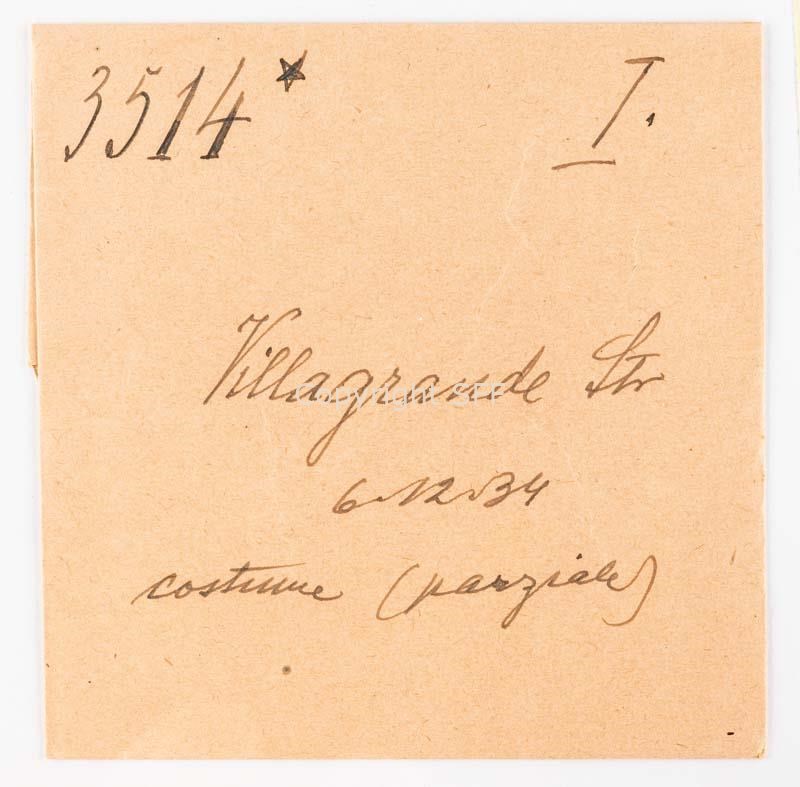 3514* I.
Villagrande Str
Copyright SFF
6.12.34
costume (parziale)